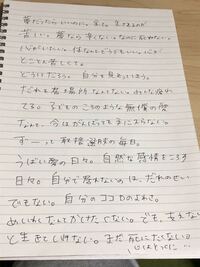 夢だったらいいのに。生きる。生きてるのが
苦しい。夢なら辛くない。なのに覚めない。
心がいたい。体なんてどうでもいい。心が
とことん苦しくて。
どうしてだろう。自分で見えてしまう。
だれも居る場所なんてない。わけも疲れ
てる。子どものころのような無償の愛
なんて、今はがんばっても手に入らない。
ずーっと取捨選択の毎日。
うばい愛の日々。自然な感情をころす
日々。自分で居れないのは、だれのせい
でもない。自分のココロのよわさ。
めいわくなんてかけたくない。でも、支えない
と生きていけない。まだ死にたくない。